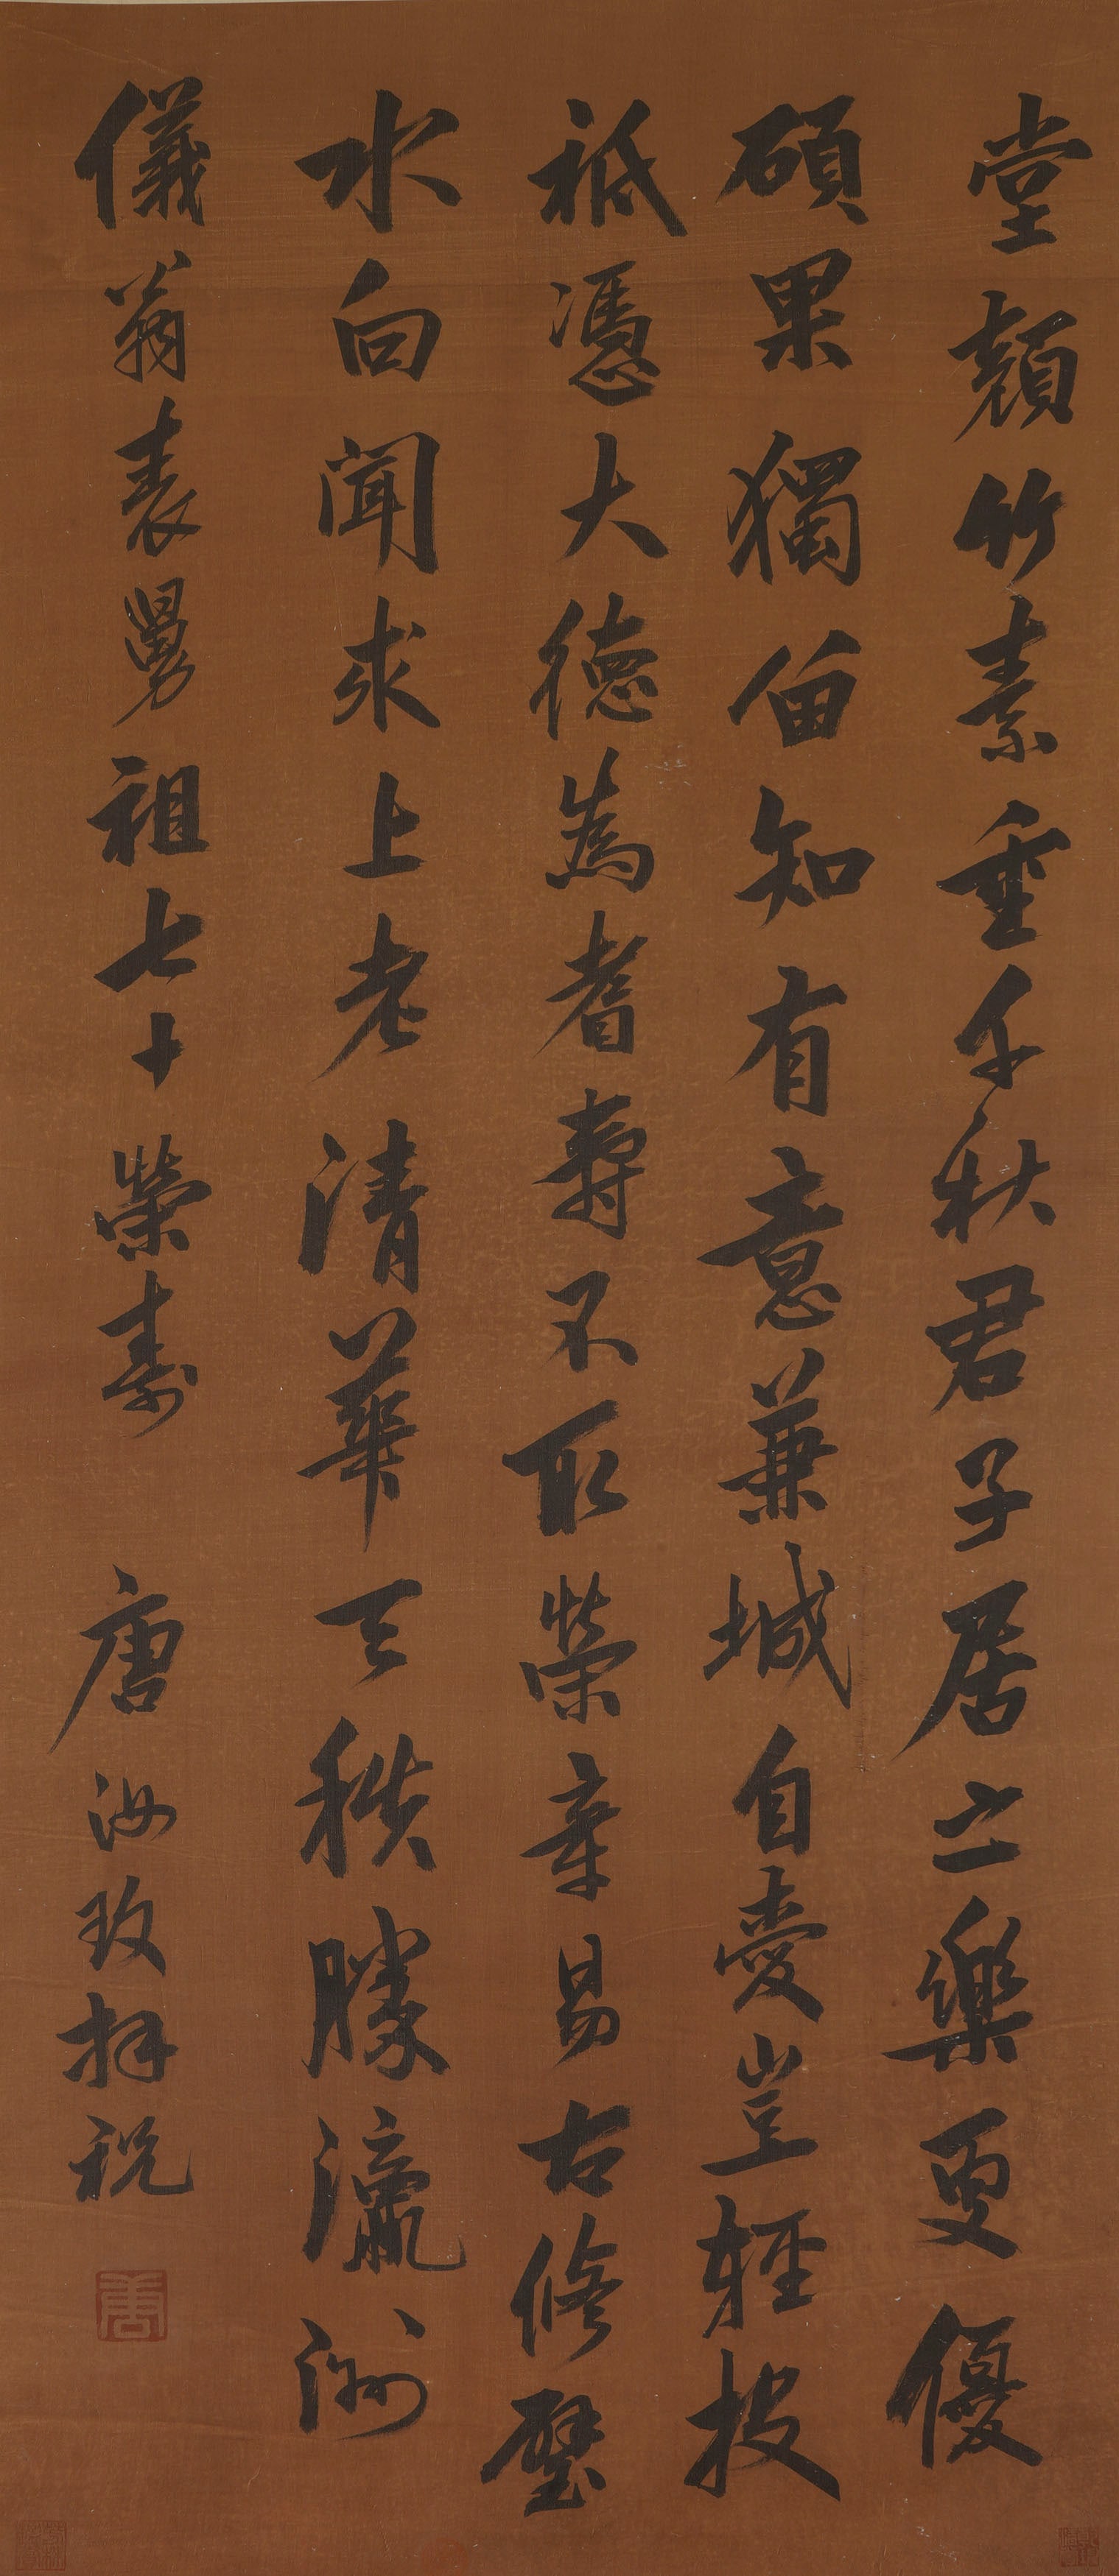 堂顏竹素重千秋君子居之樂更優
碩果獨留知有意兼城自愛豈輕投
祗憑大德為耆壽不取榮辛易古修璧
水向聞求上老清華天秩勝瀛洲
儀翁表舅祖七十榮壽 唐汝玫拜祝